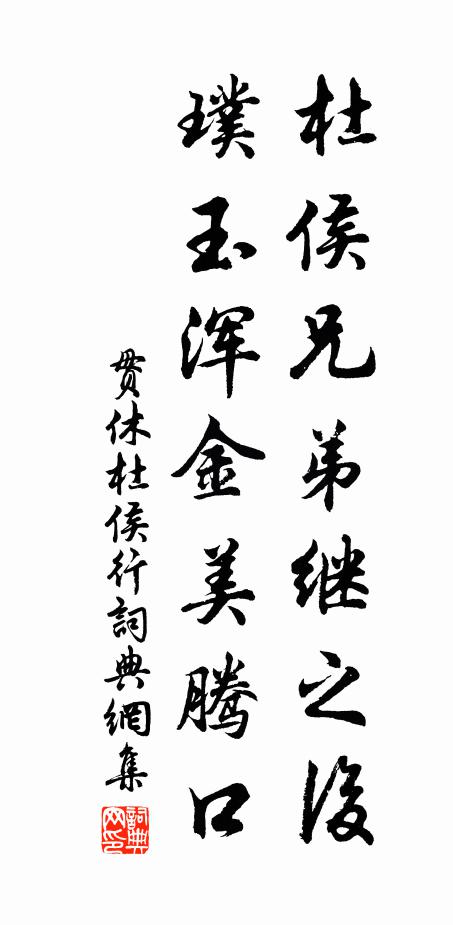 杜侯兄弟继之後
璞玉浑金美腾口
贯休杜侯行詞典網集
詞典网印